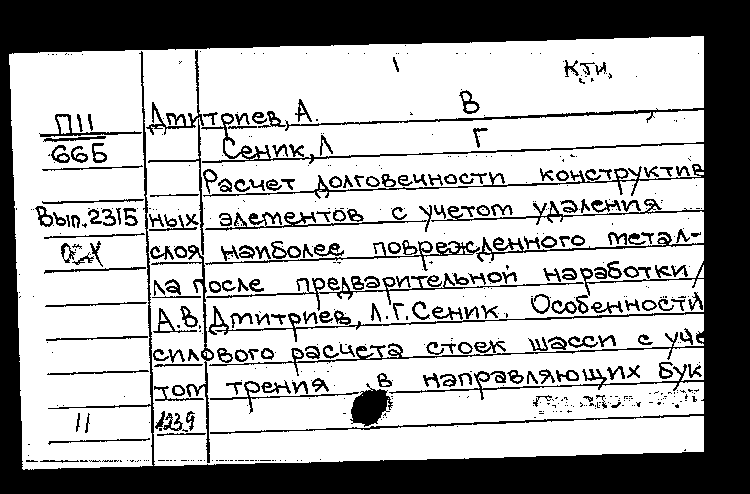 КТИ.
П11 Дмитриев, А. В
66Б Сеник, Л Г
Расчет долговечности конструктив
Вып.2315 ных элементов с учетом удаления
слоя наиболее поврежденного метал-
ла после предварительной наработки /
А.В. Дмитриев, Л.Г. Сеник. Особенности
силового расчета стоек шасси с уче
том трения в направляющих бук
11 1239